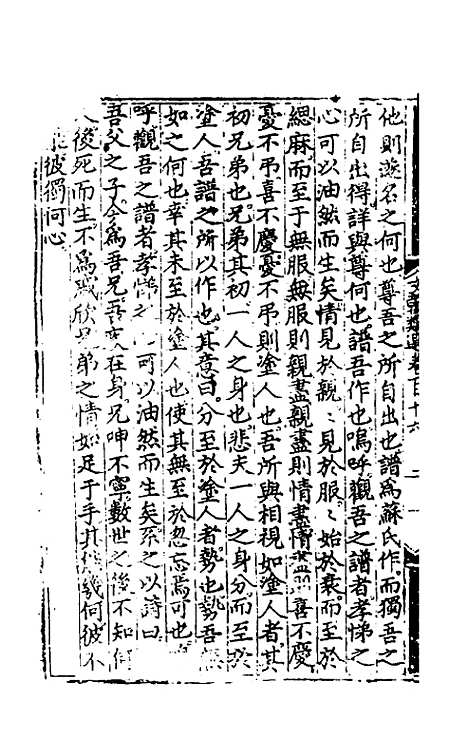 他則遂名之何也尊吾之所自出也譜為蘇氏作而獨吾之
所自出得詳與尊何也譜吾作也嗚呼觀吾之譜者孝悌之
心可以油然而生矣情見於親〻見於服〻始於衰而至於
緦麻而至于無服無服則親盡親盡則情盡情盡則喜不慶
憂不吊喜不慶憂不吊則塗人也吾所與相視如塗人者其
初兄弟也兄弟其初一人之身也悲夫一人之身分而至於
塗人吾譜之所以作也其意曰分至於塗人者勢也勢吾無
如之何也幸其未至於塗人也使其無至於忽忘焉可也
呼觀吾之譜者孝悌之 可以油然而生矣系之以詩曰
吾父之子今為吾兄吾疾在身兄呻不寧數世之後不知何
人彼死而生不為戚欣兄弟之情如足于手其能幾何彼不
彼獨何心
文編類選卷百十六
二